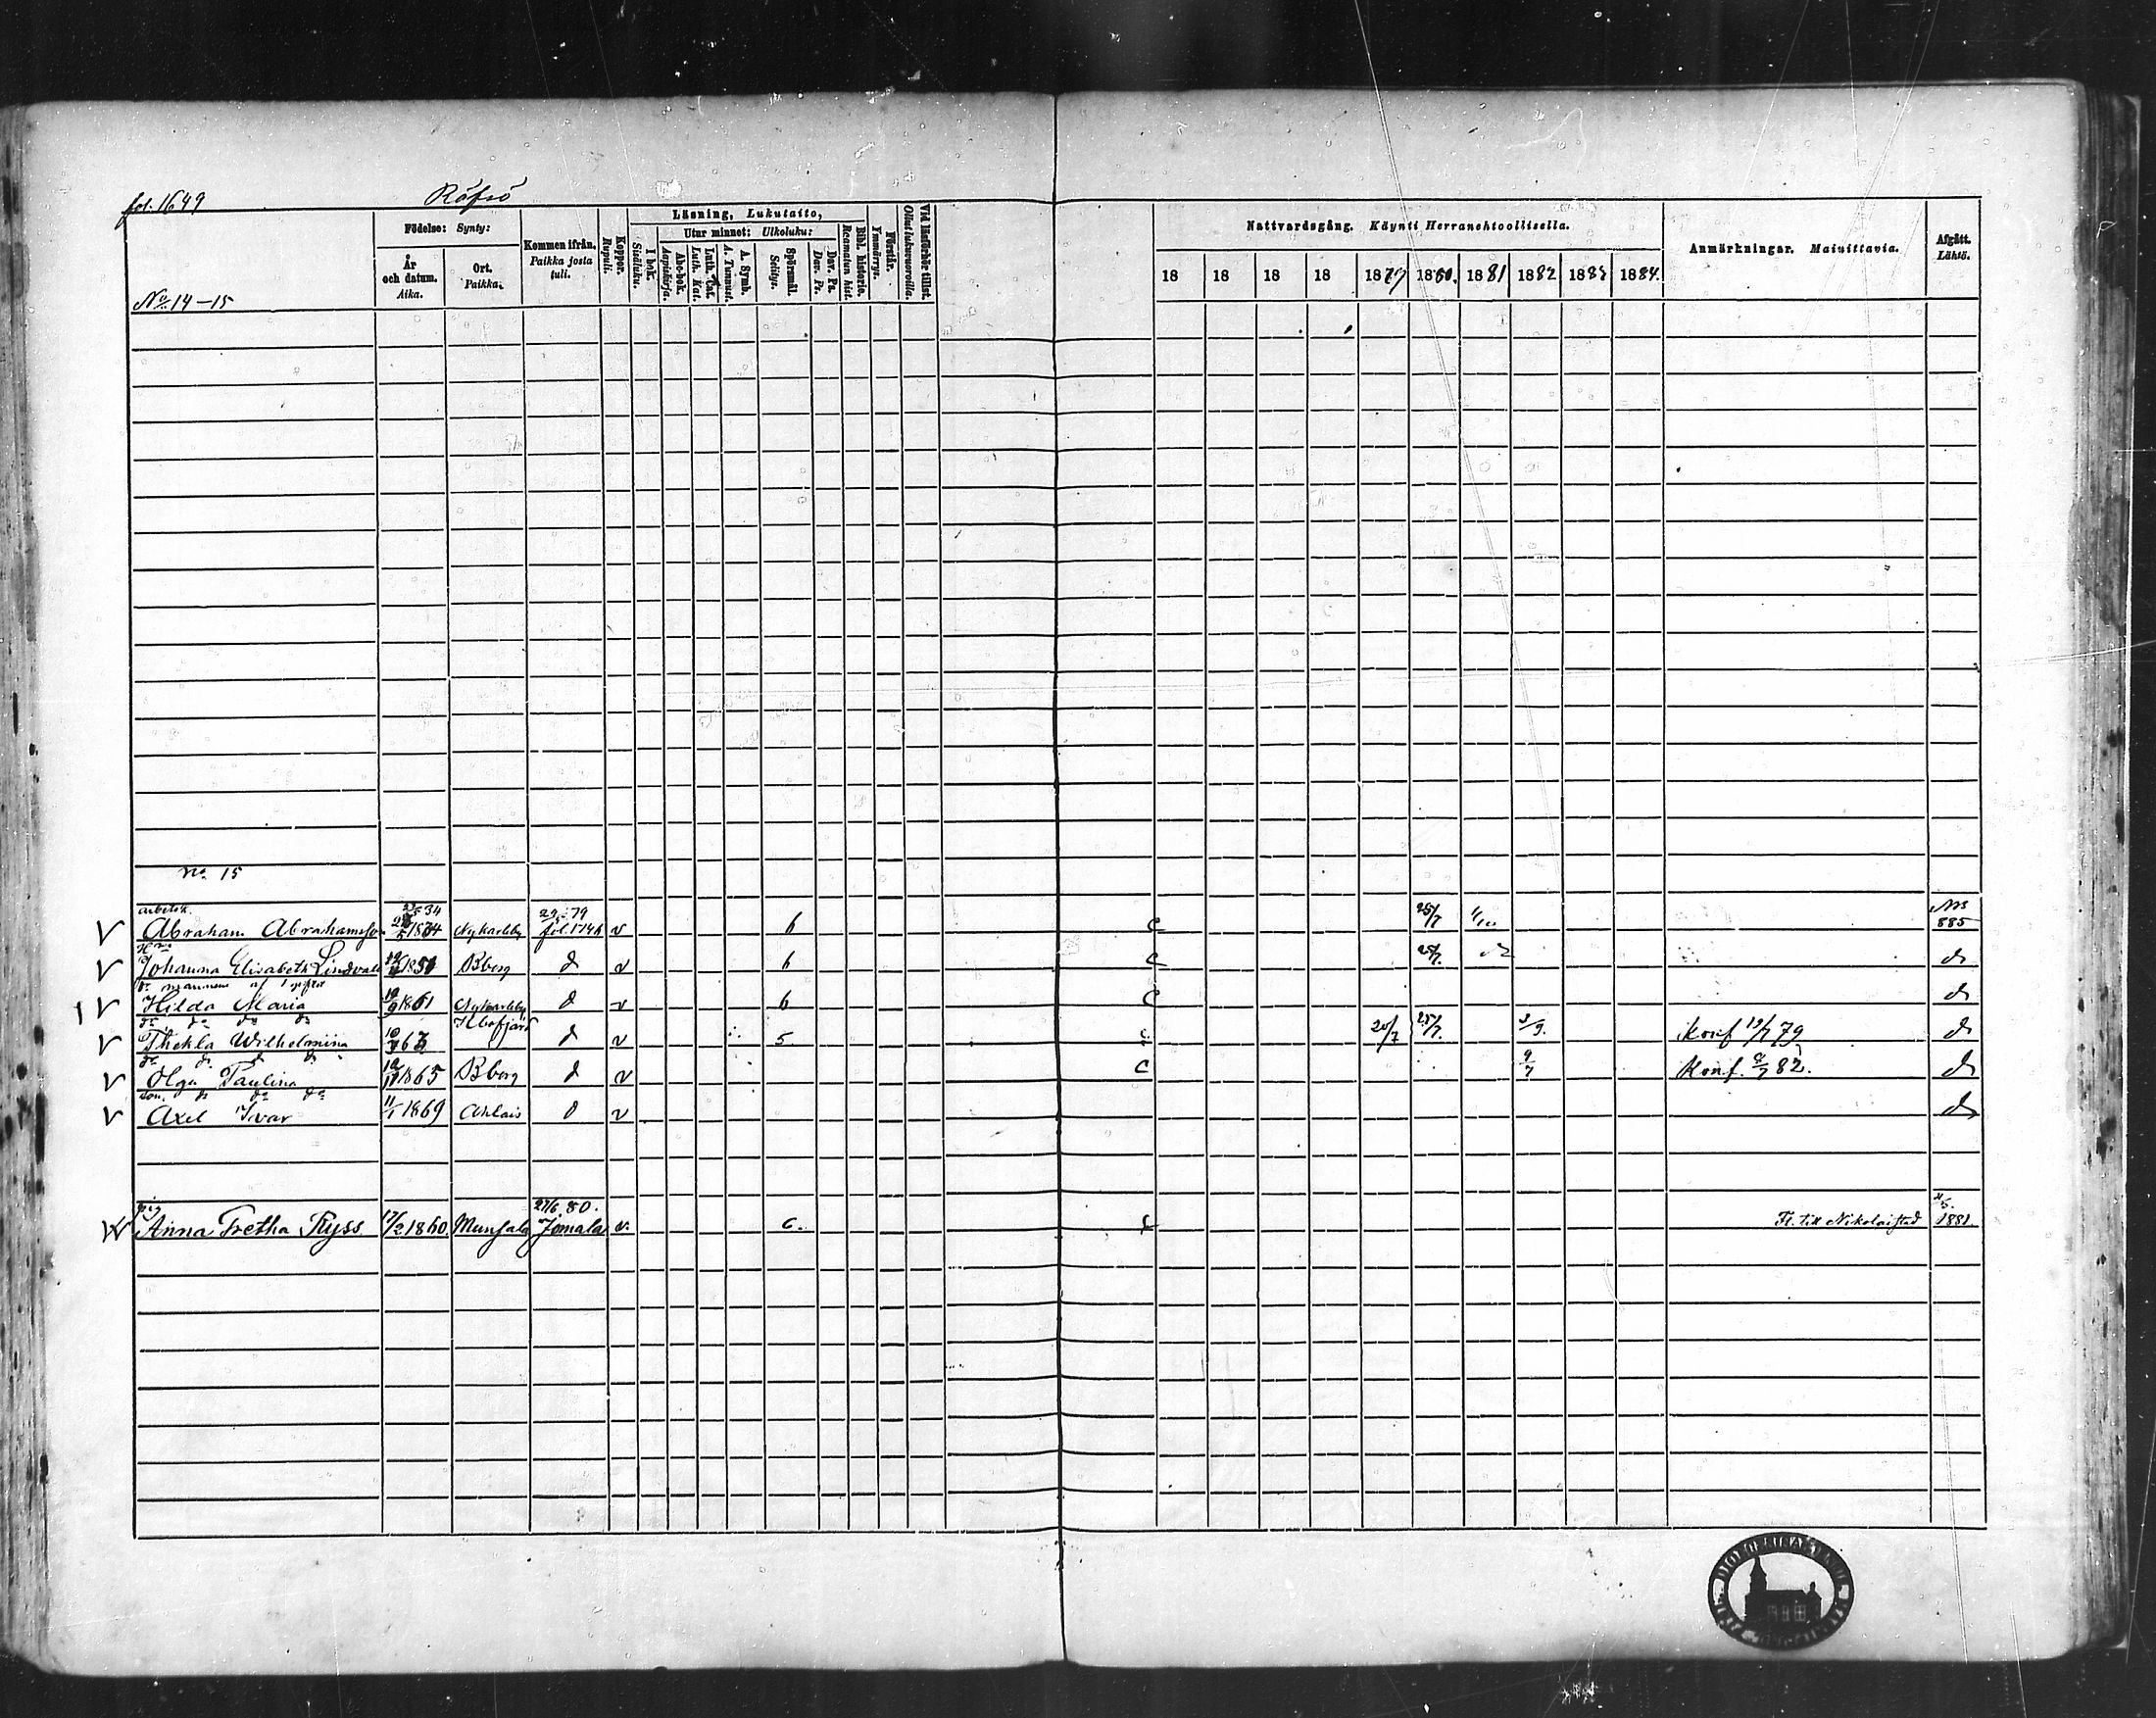 fol. 1649 Räfsö
Födelse: Synty:
År och datum. Aika.
Ort. Paikka.
Kommen ifrån. Paikka josta tuli.
Koppor. Rupuli.
Läsning, Lukutaito,
I bok. Sisäluku.
Utur minnet: Ulkoluku:
Abc-bok. Aapiskirja.
Luth. Cat. Luth. Kat.
A. Symb. A. Tunnust.
Spörsmål. Selitys.
Dav. Ps. Dav. Ps.
Bibl. historie. Raamatun hist.
Förstår. Ymmärrys.
Vid läsförhör tillst. Ollut lukuvuoroilla.
Nattvardsgång. Käynti Herranehtoollisella.
18 18 18 18 1879 1880. 1881 1882 1883 1884.
Anmärkningar. Mainittavia.
Afgått. Lähtö.
No 14-15
No 15
arbetsk.
Abraham Abrahamsson 1834 Nykarleby fol. 1746 v 6 c 25/7 885
Johanna Elisabeth Lindvall Bberg d v 6 c 25/7
Hilda Maria 1861 Nykarleby d v 6 c
Thekla Wilhelmina d v 5 20/7 25/7 3/9. Konf 19/7 79
Olga Paulina 1865 Bberg d v c 9/7 Konf. 9/7 82.
son
Axel Ivar 11/1 1869 Ahlais d v
pig 27/6 80.
Anna Gretha Ryss 17/2 1860. Munsala Jomala v. 6. c Fl. till Nikolaistad 1881.